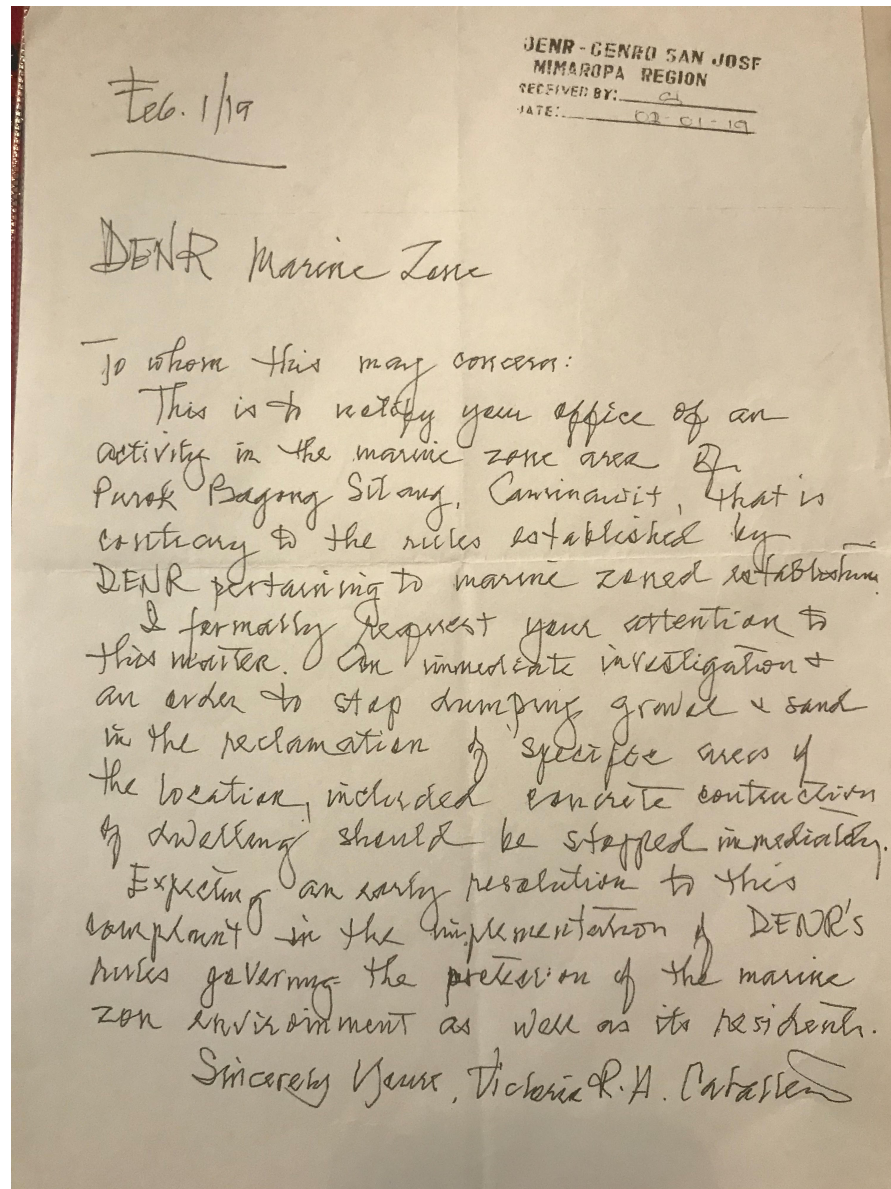 DENR - CENRO SAN JOSE
MIMAROPA REGION
RECEIVED BY:
DATE: 02-01-19
Feb. 1/19
DENR Marine Zone
To whom this may concern:
This is to notify your office of an
activity in the marine zone area of
Purok Bagong Silang, Caminawit, that is
contrary to the rules established by
DENR pertaining to marine zoned
I formally request your attention to
this matter. An immediate investigation +
an order to stop dumping gravel & sand
in the reclamation of specific areas of
the location, included concrete contruction
of dwelling should be stopped immediately.
Expecting an early resolution to this
complaint in the implementation of DENR's
rules governing the protection of the marine
zon environment as well as its residents.
Sincerely Yours, Victoria R. A.